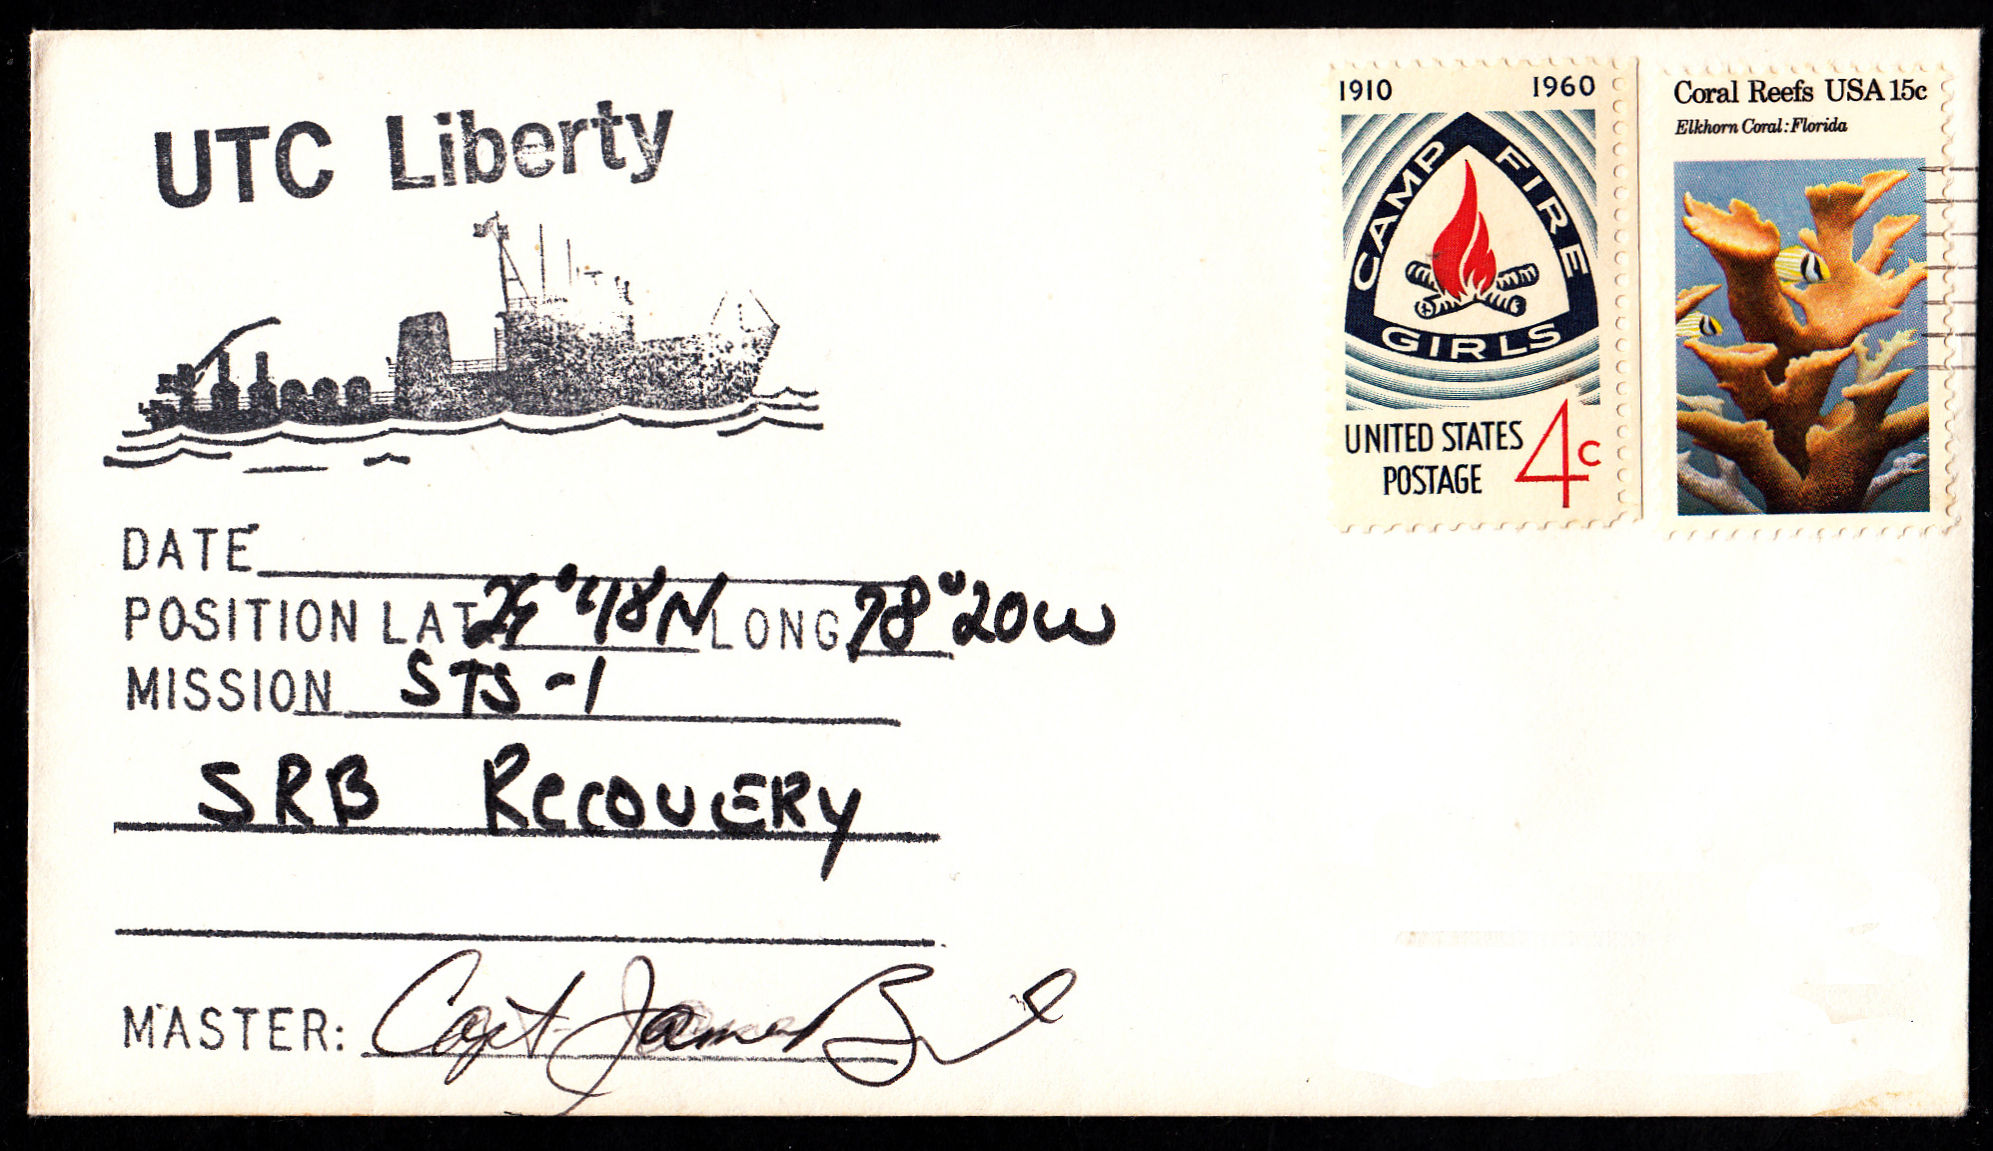 UTC Liberty
1910 1960
CAMP FIRE GIRLS
UNITED STATES
POSTAGE 4c
Coral Reefs USA 15c
Elkhorn Coral: Florida
DATE
POSITION LAT LONG 78° 20W
MISSION STS-1
SRB RECOVERY
MASTER: Capt James